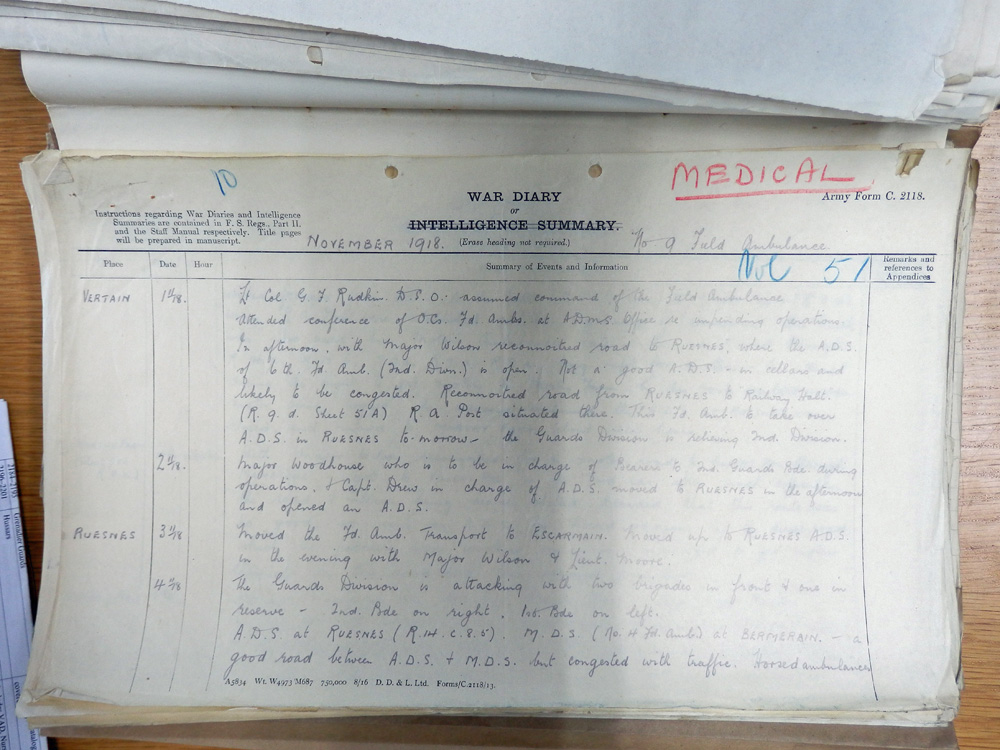 10
MEDICAL
WAR DIARY
or
INTELLIGENCE SUMMARY.
(Erase heading not required.)
Army Form C. 2118.
Instructions regarding War Diaries and Intelligence
Summaries are contained in F. S. Regs., Part II.
and the Staff Manual respectively. Title pages
will be prepared in manuscript.
NOVEMBER 1918.
No 9 Field Ambulance
Vol 51
Place Date Hour Summary of Events and Information Remarks and
references to
Appendices
VERTAIN 1 11/18. Lt Col G. F. Rudkin D.S.O. assumed command of the Field Ambulance
Attended conference of O.C. Fd. Ambs. at A.D.M.S. Office re impending operations.
In afternoon, with Major Wilson reconnoitred road to RUESNES, where the A.D.S.
of 6th. Fd. Amb. (2nd. Divn.) is open. Not a good A.D.S. - in cellars and
likely to be congested. Reconnoitred road from RUESNES to Railway Halt.
(R. 9. d. Sheet 51A) R. A. Post situated there. This Fd. Amb. to take over
A.D.S. in RUESNES to-morrow - the Guards Division is relieving 2nd. Division.
2 11/18. Major Woodhouse who is to be in charge of Bearers to 2nd. Guards Bde. during
operations, & Capt. Drew in charge of A.D.S. moved to RUESNES in the afternoon
and opened an A.D.S.
RUESNES 3 11/18 Moved the Fd. Amb. Transport to ESCARMAIN. Moved up to RUESNES A.D.S.
in the evening with Major Wilson & Lieut. Moore.
4 11/18 The Guards Division is attacking with two brigades in front & one in
reserve - 2nd. Bde on right, 1st. Bde on left.
A.D.S. at RUESNES (R.14. c. 8.5). M.D.S. (No. 4 Fd. Amb.) at BERMERAIN. - a
good road between A.D.S. & M.D.S. but congested with traffic. Horsed ambulances
A5834 Wt. W4973 M687 750,000 8/16 D. D. & L. Ltd. Forms/C.2118/13.
Grenadier Guards
Hussars